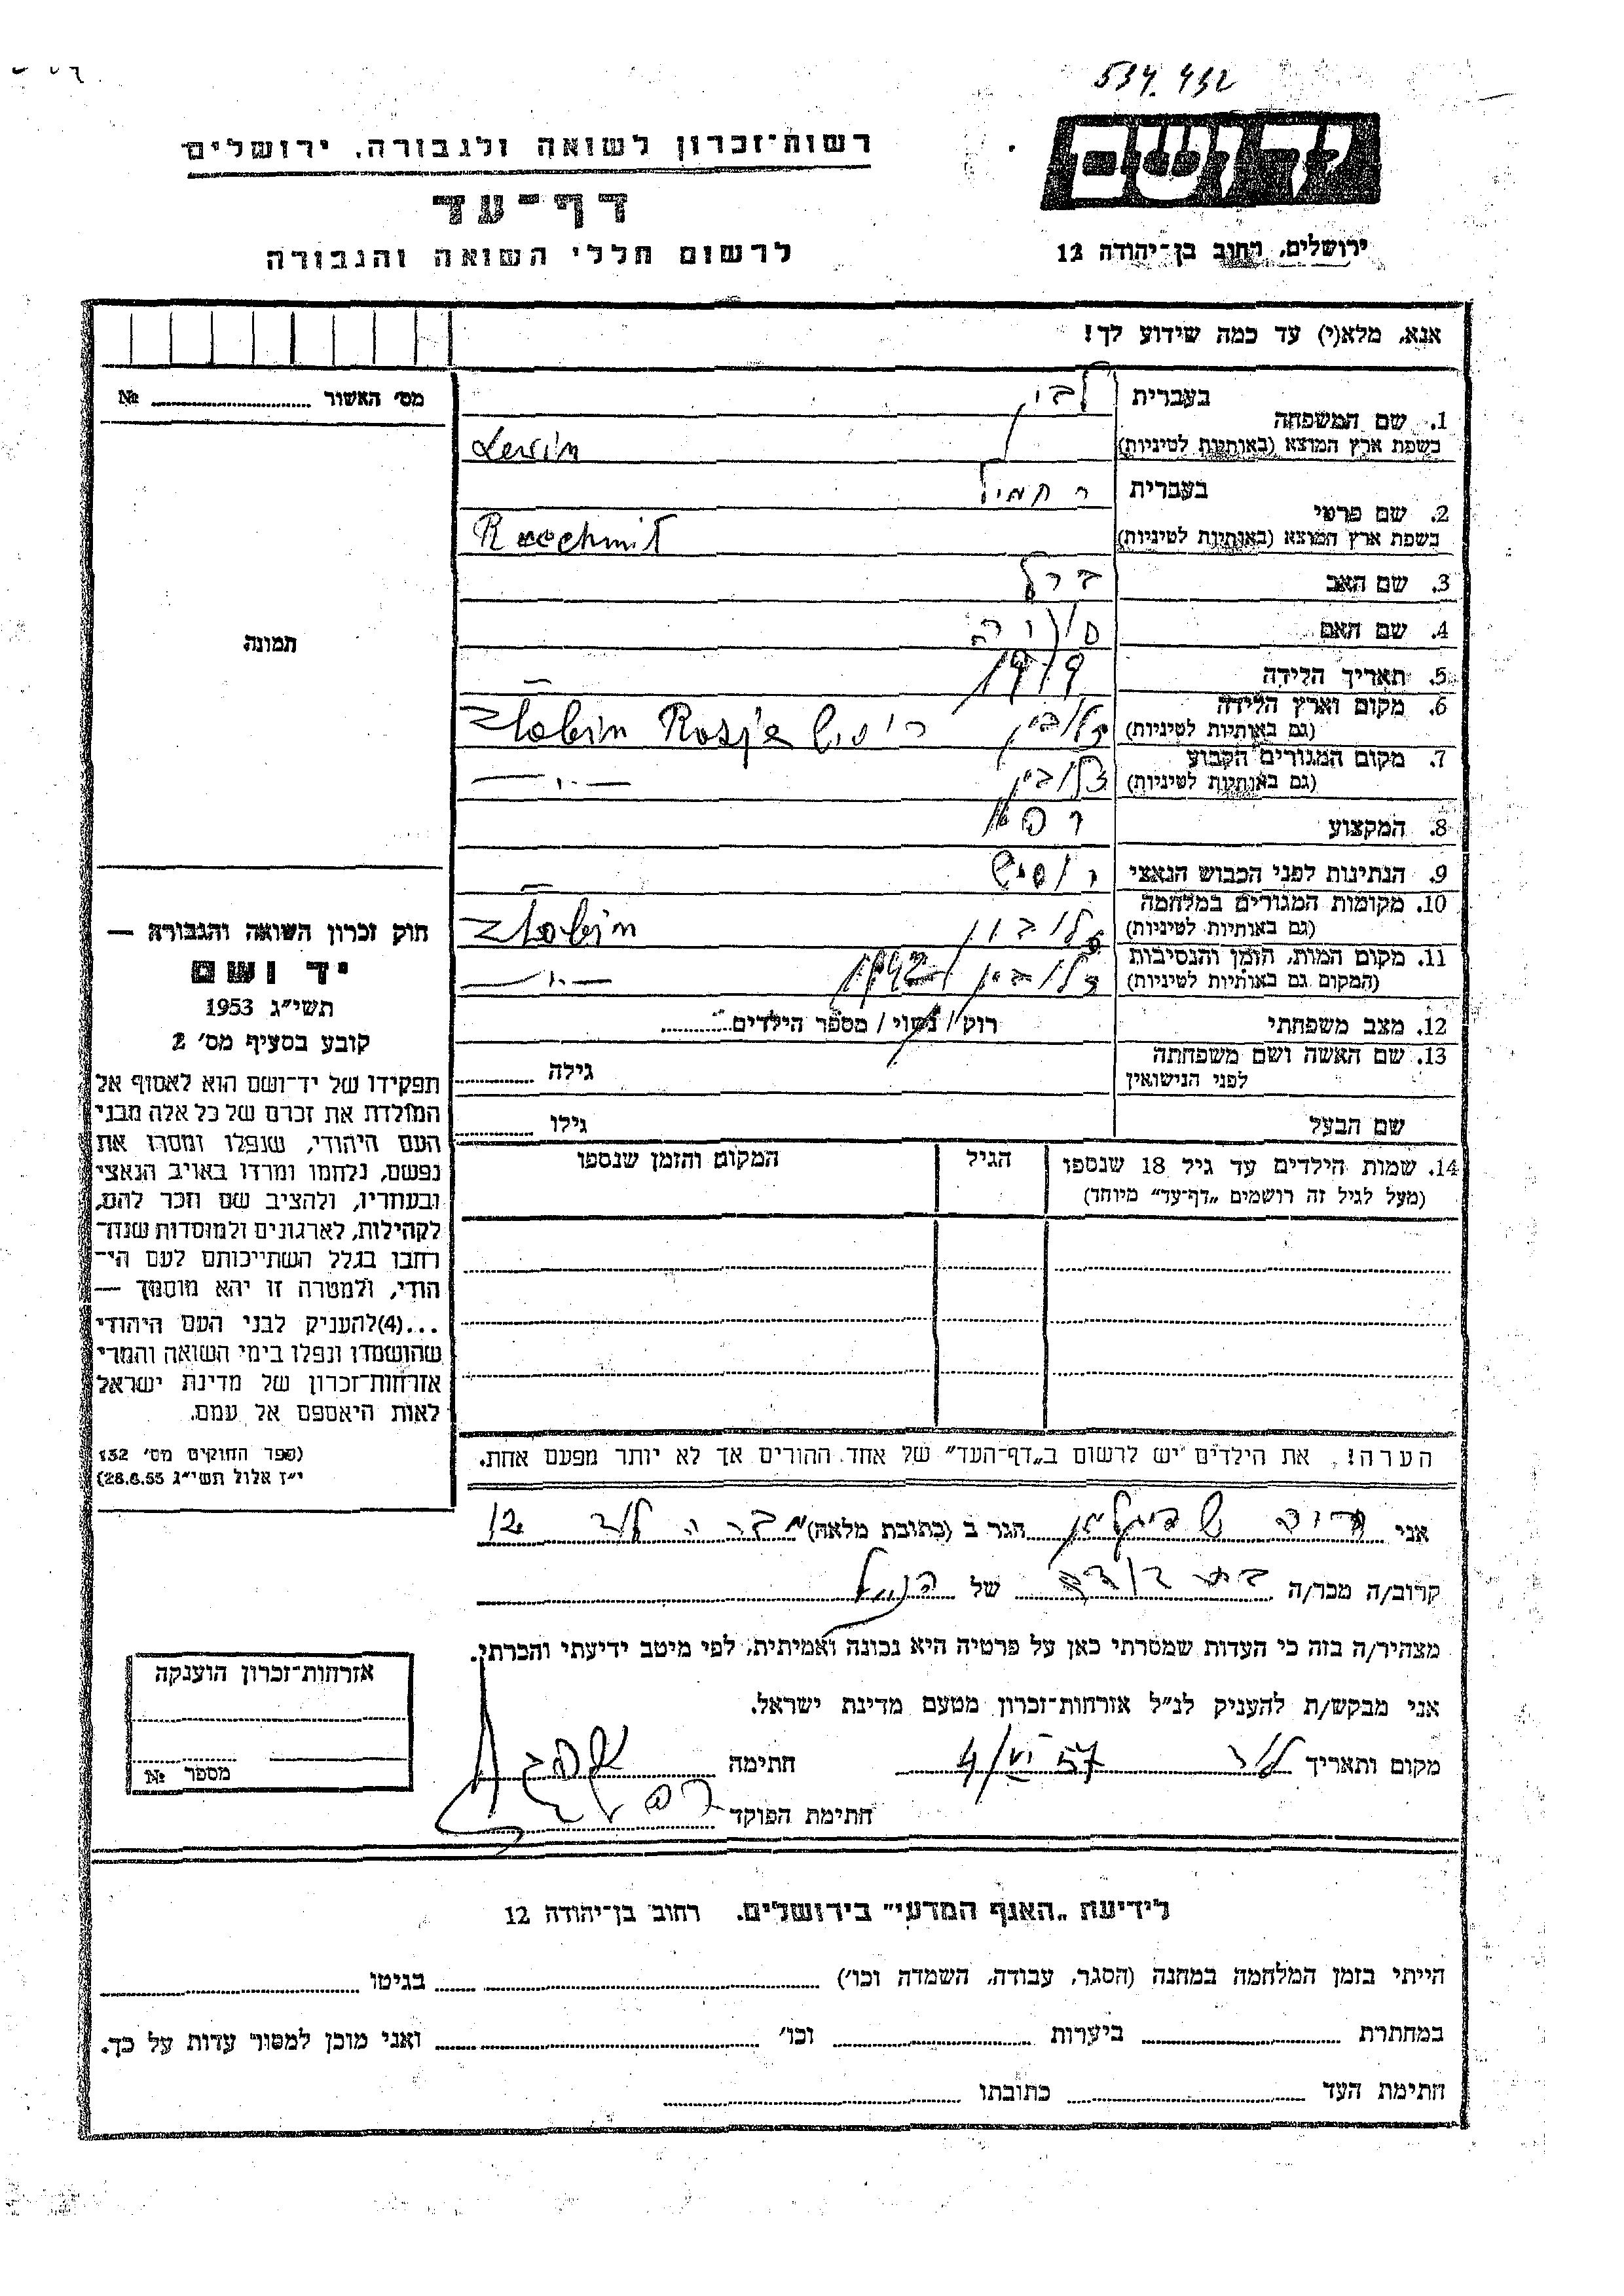 534.432
רשות־זכרון לשואה ולגבורה, ירושלים
יד ושם
דף־עד
לרשום חללי השואה והגבורה
ירושלים, רחוב בן־יהודה 12
אנא, מלא(י) עד כמה שידוע לך!
מס׳ האשור №
1. שם המשפחה בעברית לוין
בשפת ארץ המוצא (באותיות לטיניות) Lewin
2. שם פרטי בעברית רחמיל
בשפת ארץ המוצא (באותיות לטיניות) Rachmil
3. שם האב ברל
4. שם האם
5. תאריך הלידה 1919
6. מקום וארץ הלידה
(גם באותיות לטיניות) זלובין Żlobin Rosja
7. מקום המגורים הקבוע
(גם באותיות לטיניות) זלובין
8. המקצוע רופא
9. הנתינות לפני הכבוש הנאצי
10. מקומות המגורים במלחמה
(גם באותיות לטיניות) זלובין Żlobin
11. מקום המות, הזמן והנסיבות
(המקום גם באותיות לטיניות) זלובין 1942
12. מצב משפחתי רוק / נשוי / מספר הילדים
13. שם האשה ושם משפחתה
לפני הנישואין גילה
שם הבעל גילו
14. שמות הילדים עד גיל 18 שנספו הגיל המקום והזמן שנספו
(מעל לגיל זה רושמים „דף־עד” מיוחד)
הערה! את הילדים יש לרשום ב„דף־העד” של אחד ההורים אך לא יותר מפעם אחת.
תמונה
חוק זכרון השואה והגבורה —
יד ושם
תשי״ג 1953
קובע בסעיף מס׳ 2
תפקידו של יד־ושם הוא לאסוף אל
המולדת את זכרם של כל אלה מבני
העם היהודי, שנפלו ומסרו את
נפשם, נלחמו ומרדו באויב הנאצי
ובעוזריו, ולהציב שם וזכר להם,
לקהילות, לארגונים ולמוסדות שנח־
רבו בגלל השתייכותם לעם הי־
הודי, ולמטרה זו יהא מוסמך —
...(4)להעניק לבני העם היהודי
שהושמדו ונפלו בימי השואה והמרי
אזרחות־זכרון של מדינת ישראל
לאות היאספם אל עמם.
(ספר החוקים מס׳ 132
י״ז אלול תשי״ג 28.8.53)
אני הגר ב (כתובת מלאה) 12
קרוב/ה מכר/ה בת דודה של הנ״ל
מצהיר/ה בזה כי העדות שמסרתי כאן על פרטיה היא נכונה ואמיתית, לפי מיטב ידיעתי והכרתי.
אני מבקש/ת להעניק לנ״ל אזרחות־זכרון מטעם מדינת ישראל.
מקום ותאריך לוד 4/VI 57 חתימה
חתימת הפוקד
אזרחות־זכרון הוענקה
מספר №
לידיעת „האגף המדעי” בירושלים. רחוב בן־יהודה 12
הייתי בזמן המלחמה במחנה (הסגר, עבודה, השמדה וכו׳) בגיטו
במחתרת ביערות וכו׳ ואני מוכן למסור עדות על כך.
חתימת העד כתובתו